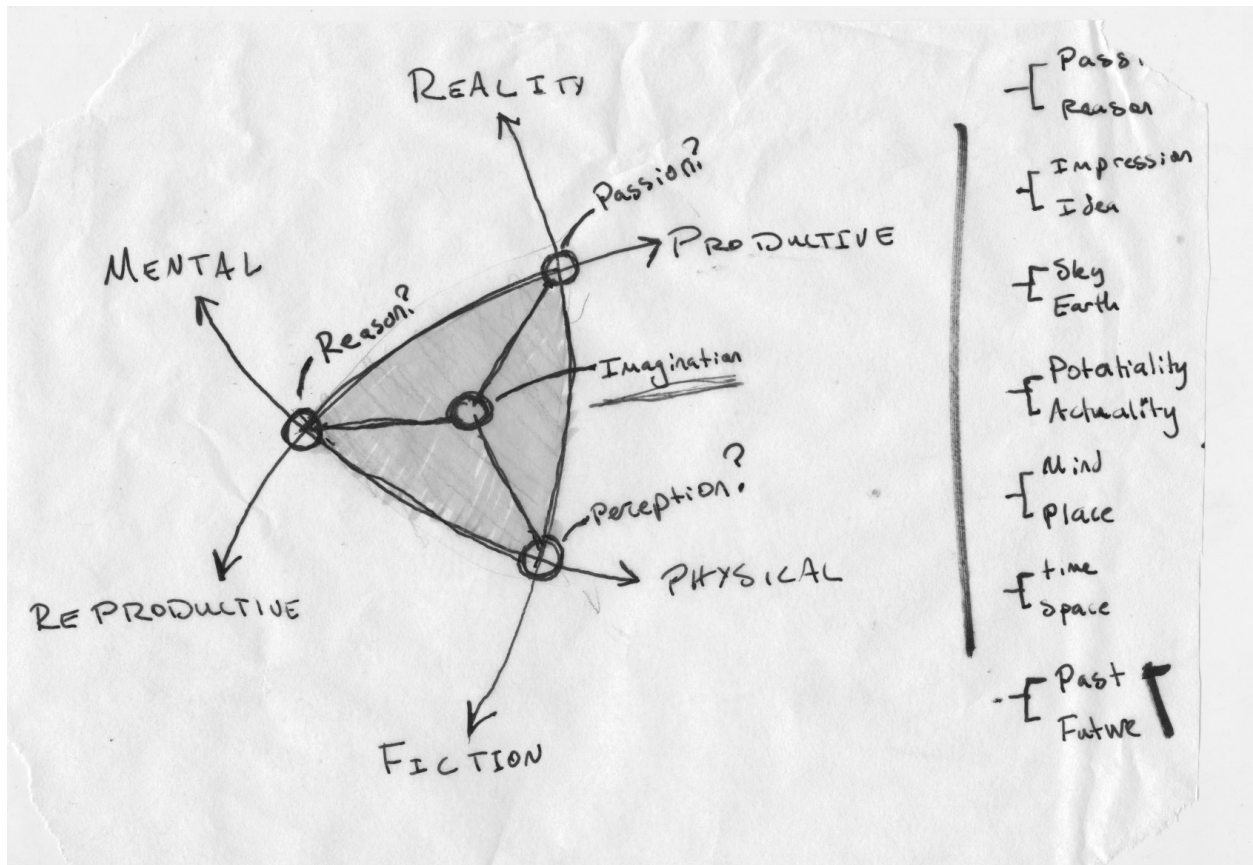 REALITY
Passion?
PRODUCTIVE
MENTAL
Reason?
Imagination
Perception?
PHYSICAL
REPRODUCTIVE
FICTION
Passi
Reason
Impression
Idea
Sky
Earth
Potatiality
Actuality
Mind
Place
time
Space
Past
Future